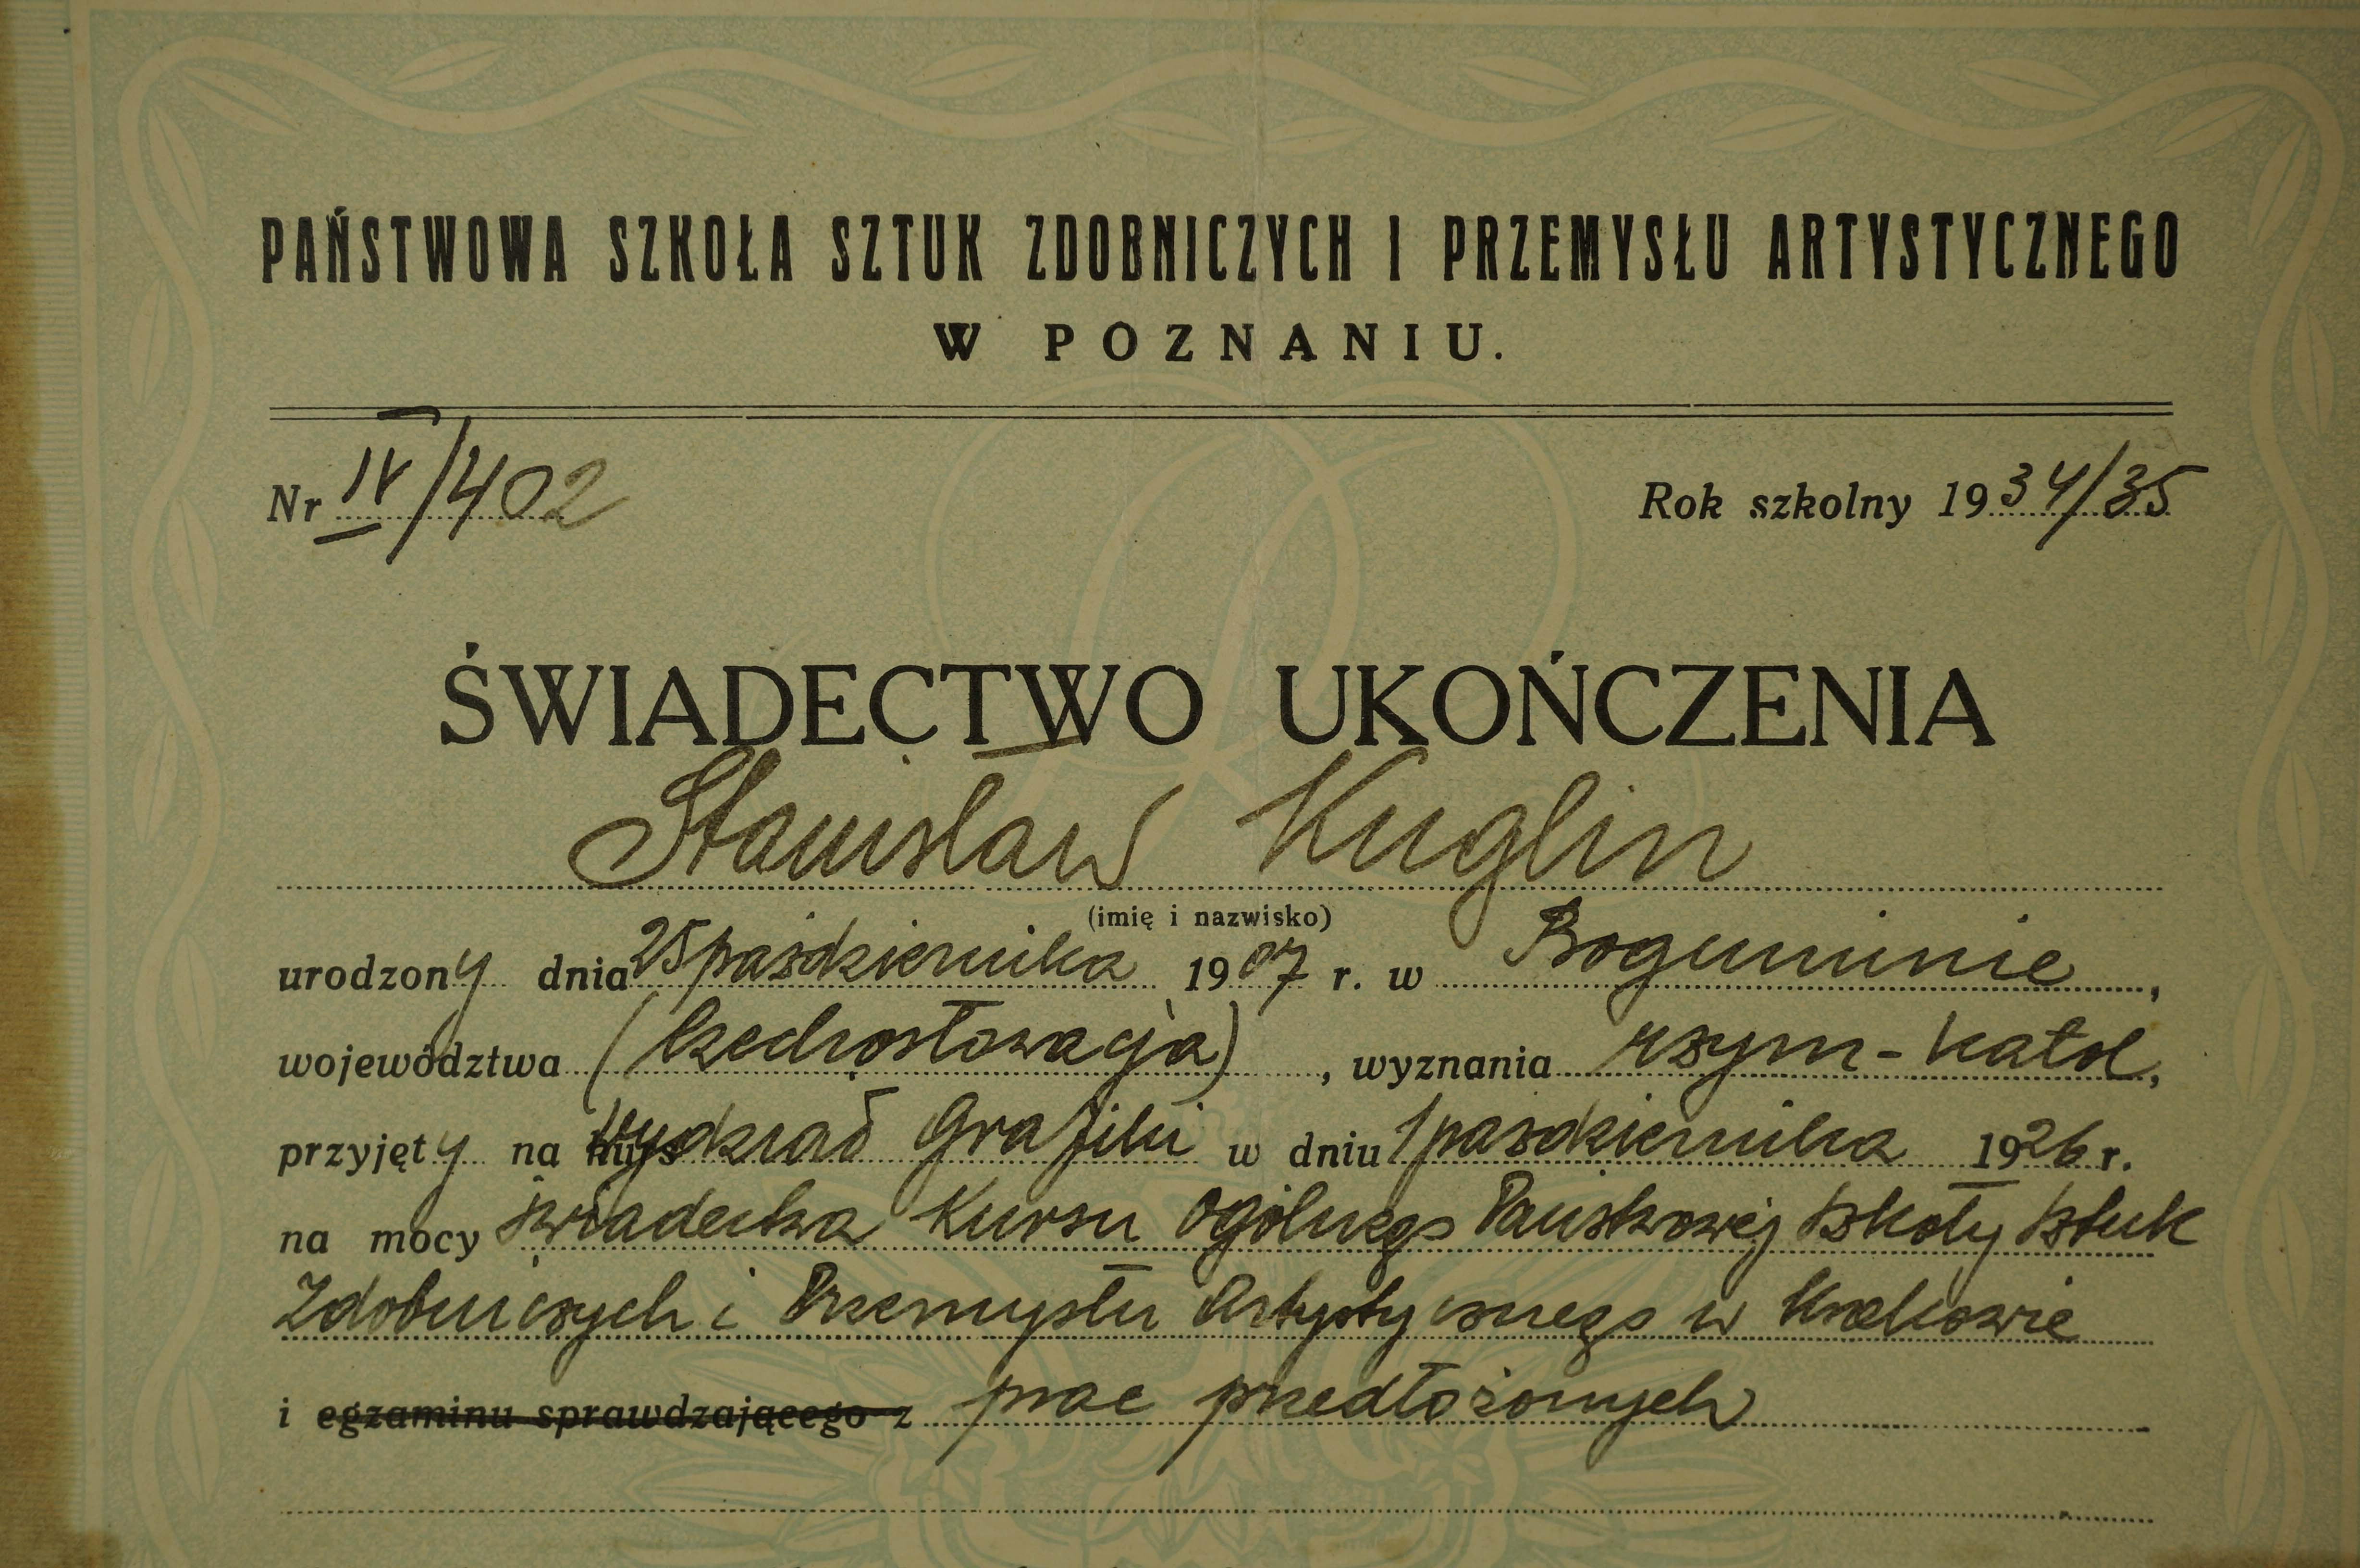 PAŃSTWOWA SZKOŁA SZTUK ZDOBNICZYCH I PRZEMYSŁU ARTYSTYCZNEGO
W POZNANIU.
Nr IV/402 Rok szkolny 1934/35
ŚWIADECTWO UKOŃCZENIA
Stanisław Kuglin
(imię i nazwisko)
urodzony dnia 25 października 1907 r. w Boguminie,
województwa (Czechosłowacja), wyznania rzym-katol,
przyjęty na kurs wydział Grafiki w dniu 1 października 1926 r.
na mocy świadectwa Kursu Ogólnego Państwowej Szkoły Sztuk
Zdobniczych i Przemysłu Artystycznego w Krakowie
i egzaminu sprawdzającego z prac przedłożonych